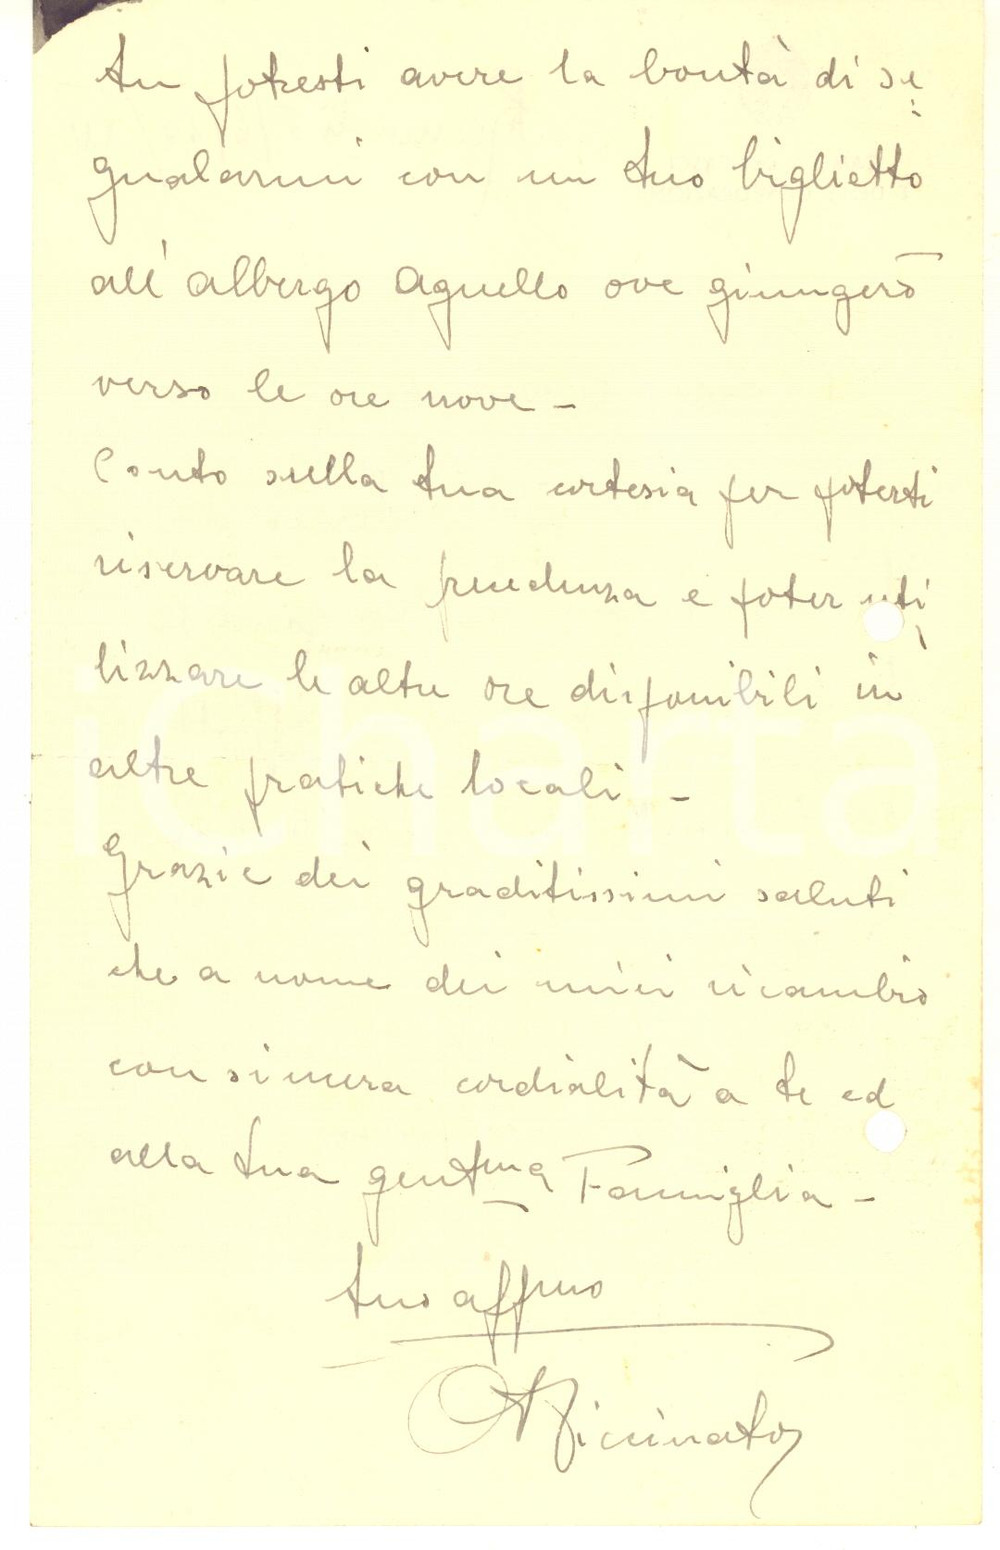 tu potresti avere la bontà di se
gnalarmi con un tuo biglietto
all'albergo Agnello ove giungerò
verso le ore nove –
Conto sulla tua cortesia per poterti
riservare la precedenza e poter uti
lizzare le altre ore disponibili in
altre pratiche locali –
Grazie dei graditissimi saluti
che a nome dei miei ricambio
con sincera cordialità a te ed
alla tua gentma Famiglia –
tuo affmo
iCharta